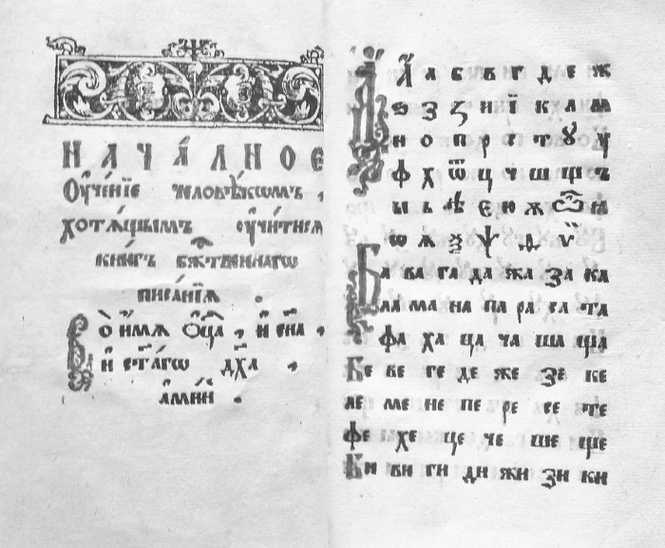 НАЧА́ЛНОЕ
Оу҆че́нїе человѣ́кѡмъ ,
хотѧ́щымъ оу҆чи́тисѧ
кни́гъ бж҃твеннагѡ
писа́нїѧ .
Во и҆́мѧ Ѻц҃а̀ , и҆ сн҃а ,
и҆ ст҃а́гѡ дх҃а .
а҆ми́нь .
А а б в г д е ж
ѕ з ꙁ и ї к л м
н о п р с т ꙋ у
ф х ѿ ц ч ш щ ъ
ы ь ѣ є ю ѫ ѽ ꙗ
ѡ ѧ ѯ ѱ ѳ ѵ
Ба ва га да жа за ка
ла ма на па ра са та
фа ха ца ча ша ща
Бе ве ге де же зе ке
ле ме не пе ре се те
фе хе це че ше ще
Би ви ги ди жи зи ки